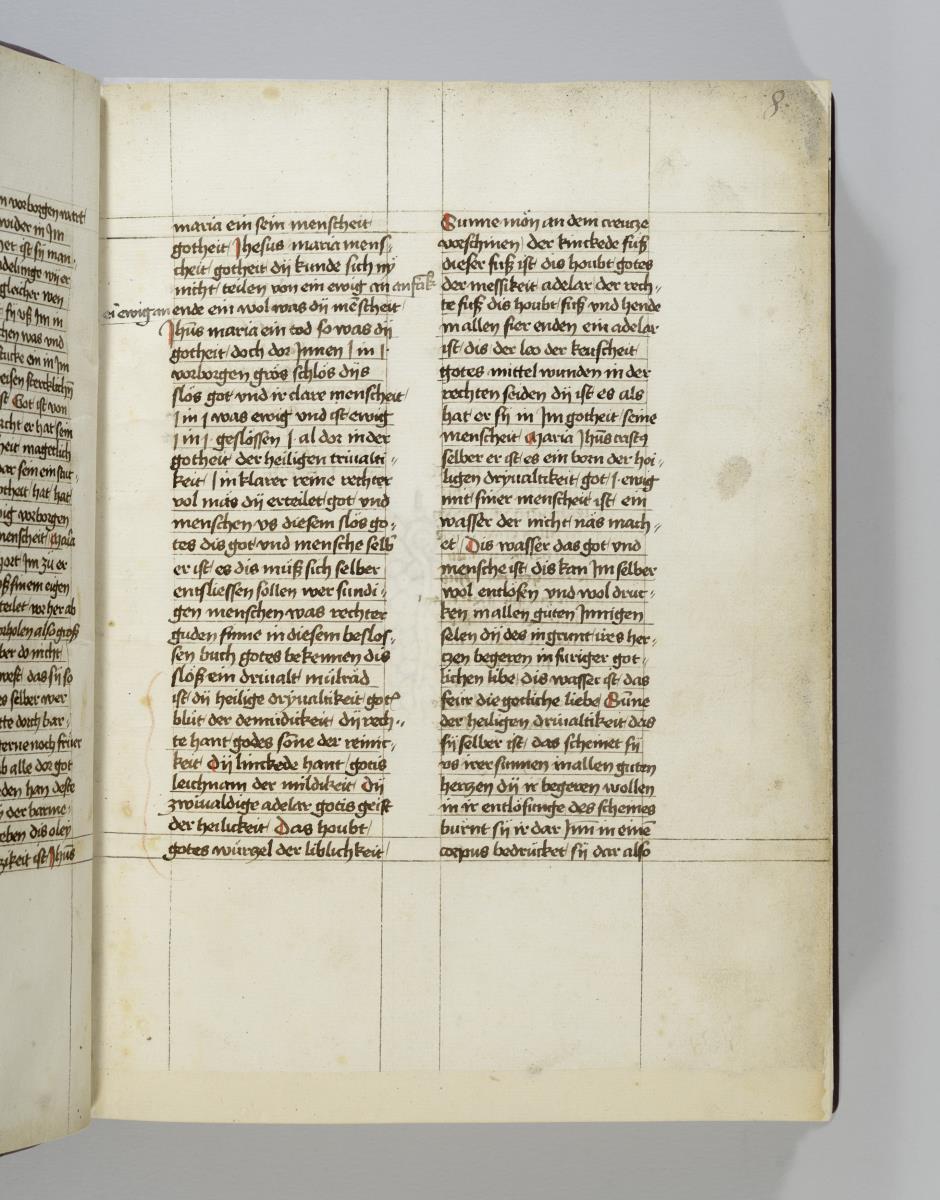 8
n vorborgen wart
wider in Im
ist sÿ man
gleicher wen
sÿ vß Im in
chen was vnd
stucke ein in Im
Got ist von
acht er hat sein
heit magetlich
otheit hat hat
ig vorborgen
menscheit Maria
Im zü er
teilet we her ab
orholen also groß
ber do nicht
west das sÿ so
es selber wer
tte doch bar
terne noch friuer
b alle dor got
eden han deste
ÿ der barme
eben dis oley
zikeit ist Ihüs
maria ein sein menscheit
gotheit Ihesus maria mens⸗
cheit gotheit dÿ kunde sich nÿ
nicht teilen von ein ewig an anfāk
ei ewig an ende ein wol was dÿ mēscheit
Ihūs maria ein tod so was dÿ
gotheit doch dor Innen I in I
vorborgen grös schlös dÿs
slös got vnd ir clare menscheit
I in I was ewig vnd ist ewig
I in I geslössen I al dor in der
gotheit der heiligen triualti⸗
keit I in klarer reine rechter
vol mäs dÿ erteilet got vnd
menschen vs diesem slös go⸗
tes dis got vnd mensche selb
er ist es dis müß sich selber
entsliessen sollen wer sundi⸗
gen menschen was rechter
guden sinne in diesem beslos⸗
sen buch gotes bekennen dis
slöß ein driualt mülräd
ist dÿ heilige drÿualtikeit got
blüt der demüdickeit dÿ rech⸗
te hant godes söne der reinic⸗
keit Dÿ linckede hant gotis
leichnam der mildikeit Dÿ
zwiualdige adelar gotis geist
der heilickeit Das houbt
gotes würzel der liblichkeit
Sunne mön an dem creutze
vorschinen der linckede fuß
dieser fuß ist dis houbt gotes
der messikeit adelar der rech⸗
te fuß dis houbt fuß vnd hende
in allen fier enden ein adelar
ist dis der leo der keuscheit
gotes mittel wunden in der
rechten seiden dÿ ist es als
hat er sÿ in Im gotheit seine
menscheit Maria Ihūs cristꝯ
selber er ist es ein born der hei⸗
ligen drÿualtikeit got I ewig
mit siner menscheit ist ein
wasser der nicht näs mach⸗
et Dis wasser das got vnd
mensche ist dis kan Im selber
wol entlösen vnd wol druc⸗
ken in allen güten Innigen
selen dÿ des in grunt ires her⸗
tzen begeren in furiger got⸗
lichen libe dis wasser ist das
feur die gotliche liebe Sunne
der heiligen driualtikeit das
sÿ selber ist das scheinet sÿ
vs irer sunnen in allen guten
hertzen dÿ ir begeren wollen
in ir entlösunge des scheines
burnt sÿ ir dar Inn in einē
corpus bedrücket sÿ dar also